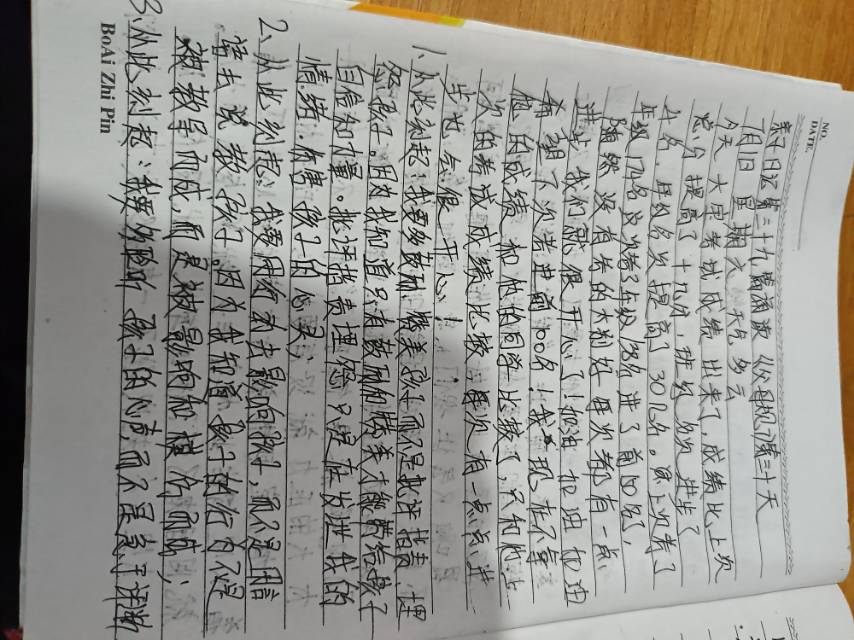 NO.
DATE.
亲子日记第三十九篇 父母规习第三十天
1月1日 星期六 天气 多云
今天 大宇考试成绩出来了,成绩比上次
总分提高了十九分,班级名次进步了
4名,年级名次提高了30几名。
年级 进了前 名,
随然没有告的太利好 每次都有一点
进步 我们就很开心了!加油 加油 加油
希望下次考进前100名!我现在不拿
他的成绩和他的同学比较了,只和他上
次的考试成绩比较,每次有一点点进
步也会很开心!
1、从此刻起:我要多鼓励、赞美孩子,而不是批评指责、埋
怨孩子。因为我知道只有鼓励和赞美才能带给孩子
自信和力量。批评指责埋怨只是在发泄我的
情绪、伤害孩子的心灵;
2、从此刻起:我要用行动去影响孩子,而不是用语
言去说教孩子。因为我知道孩子的行为不是
被教导而成,而是被影响和模仿而成;
3、从此刻起:我要多聆听孩子的心声,而不是急于评断
BoAi Zhi Pin